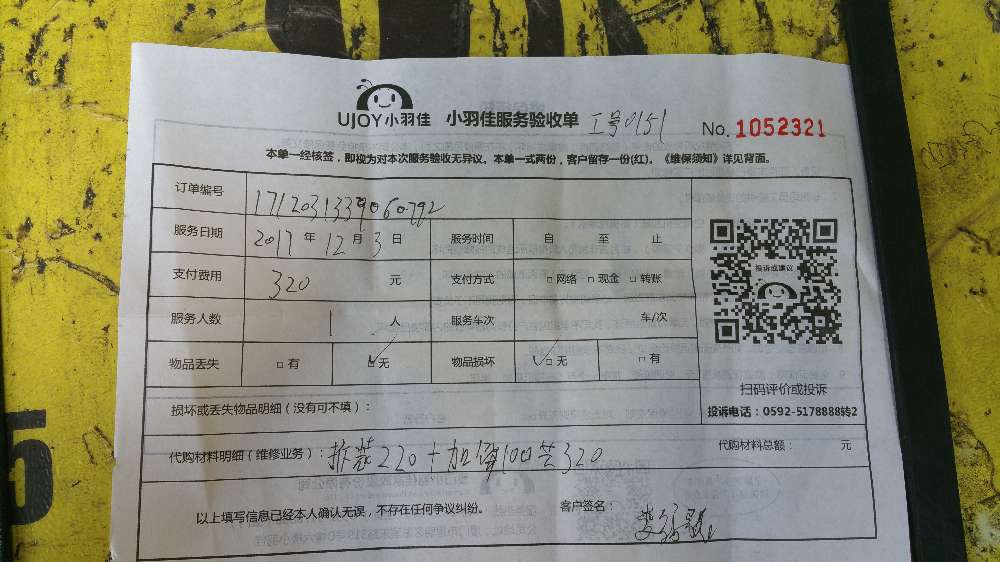 UJOY小羽佳 小羽佳服务验收单 工号0151 No. 1052321
本单一经核签，即视为对本次服务验收无异议。本单一式两份，客户留存一份(红)。《维保须知》详见背面。
订单编号 1712031339060792
服务日期 2017 年 12 月 3 日 服务时间 自 至 止
支付费用 320 元 支付方式 □网络 □现金 □转账
投诉或建议
服务人数 1 人 服务车次 车/次
物品丢失 □有 ☑无 物品损坏 ☑无 □有
扫码评价或投诉
损坏或丢失物品明细（没有可不填）：
投诉电话：0592-5178888转2
代购材料明细（维修业务）：拆装220+加 100共320 代购材料总额： 元
以上填写信息已经本人确认无误，不存在任何争议纠纷。 客户签名：